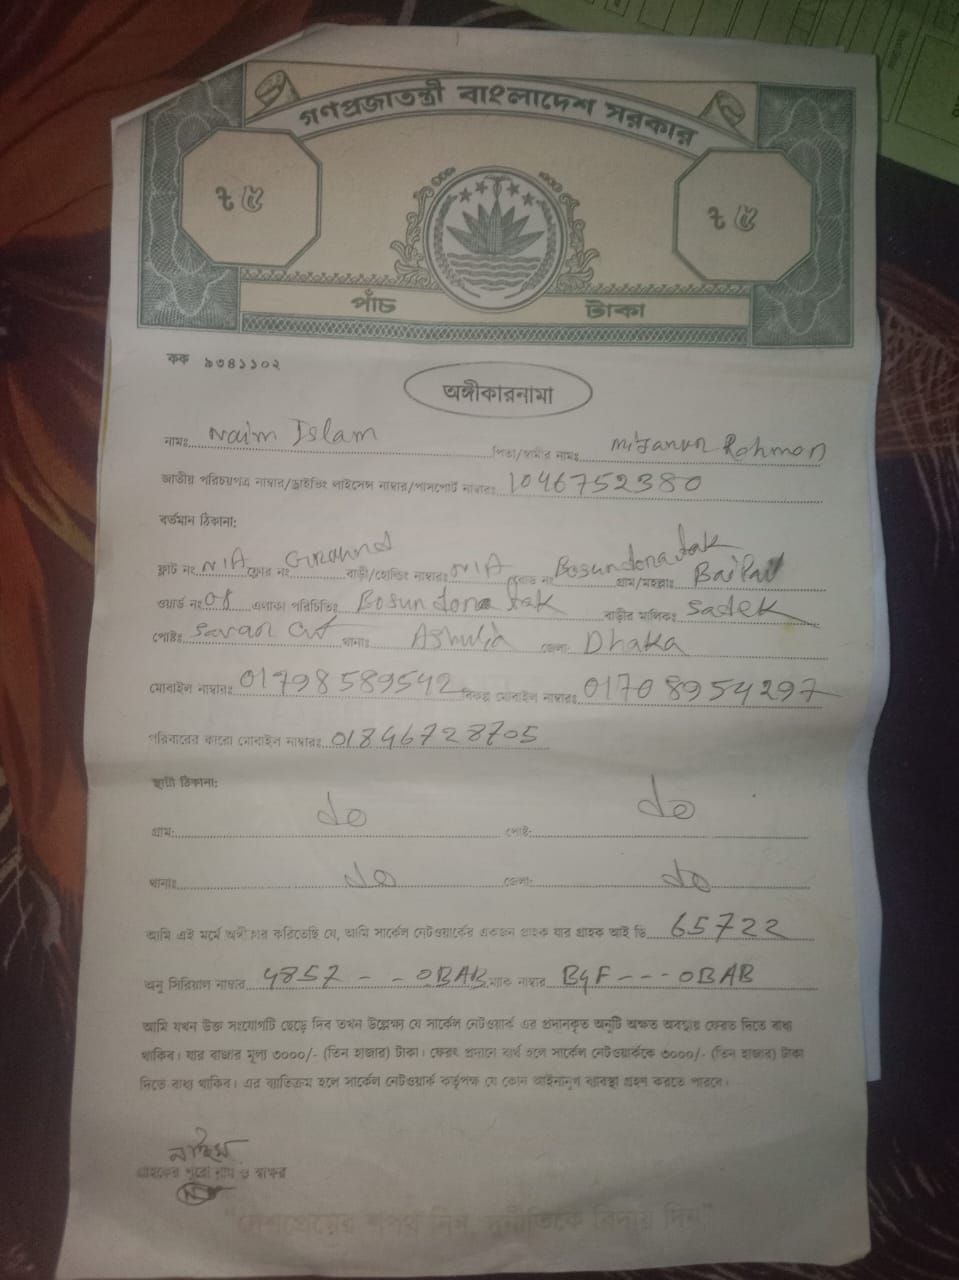 গণপ্রজাতন্ত্রী বাংলাদেশ সরকার
৳ ৫ ৳ ৫
পাঁচ টাকা
কক ৯৩৪১১০২
অঙ্গীকারনামা
নামঃ Naim Islam পিতা/স্বামীর নামঃ Mizanur Rahman
জাতীয় পরিচয়পত্র নাম্বার/ড্রাইভিং লাইসেন্স নাম্বার/পাসপোর্ট নাম্বারঃ 1046752380
বর্তমান ঠিকানা:
ফ্লাট নং N/A ফ্লোর নং Ground বাড়ী/হোল্ডিং নাম্বারঃ N/A রোড নং Bosundona tak গ্রাম/মহল্লাঃ Baipail
ওয়ার্ড নং 08 এলাকা পরিচিতিঃ Bosundona tak বাড়ীর মালিকঃ Sadek
পোষ্টঃ Savar থানাঃ Ashulia জেলা: Dhaka
মোবাইল নাম্বারঃ 01798589542 বিকল্প মোবাইল নাম্বারঃ 01708954297
পরিবারের কারো মোবাইল নাম্বারঃ 01846728705
স্থায়ী ঠিকানা:
গ্রাম: do পোষ্ট: do
থানাঃ do জেলা: do
আমি এই মর্মে অঙ্গীকার করিতেছি যে, আমি সার্কেল নেটওয়ার্কের একজন গ্রাহক যার গ্রাহক আই ডি 65722
অনু সিরিয়াল নাম্বার 4857 - - 0BAB ম্যাক নাম্বার B4F - - - 0BAB
আমি যখন উক্ত সংযোগটি ছেড়ে দিব তখন উল্লেক্ষ্য যে সার্কেল নেটওয়ার্ক এর প্রদানকৃত অনুটি অক্ষত অবস্থায় ফেরত দিতে বাধ্য
থাকিব। যার বাজার মূল্য ৩০০০/- (তিন হাজার) টাকা। ফেরৎ প্রদানে ব্যর্থ হলে সার্কেল নেটওয়ার্ককে ৩০০০/- (তিন হাজার) টাকা
দিতে বাধ্য থাকিব। এর ব্যাতিক্রম হলে সার্কেল নেটওয়ার্ক কর্তৃপক্ষ যে কোন আইনানুগ ব্যবস্থা গ্রহণ করতে পারবে।
নাইম
গ্রাহকের পুরো নাম ও স্বাক্ষর
"দেশপ্রেমের শপথ নিন, দুর্নীতিকে বিদায় দিন"